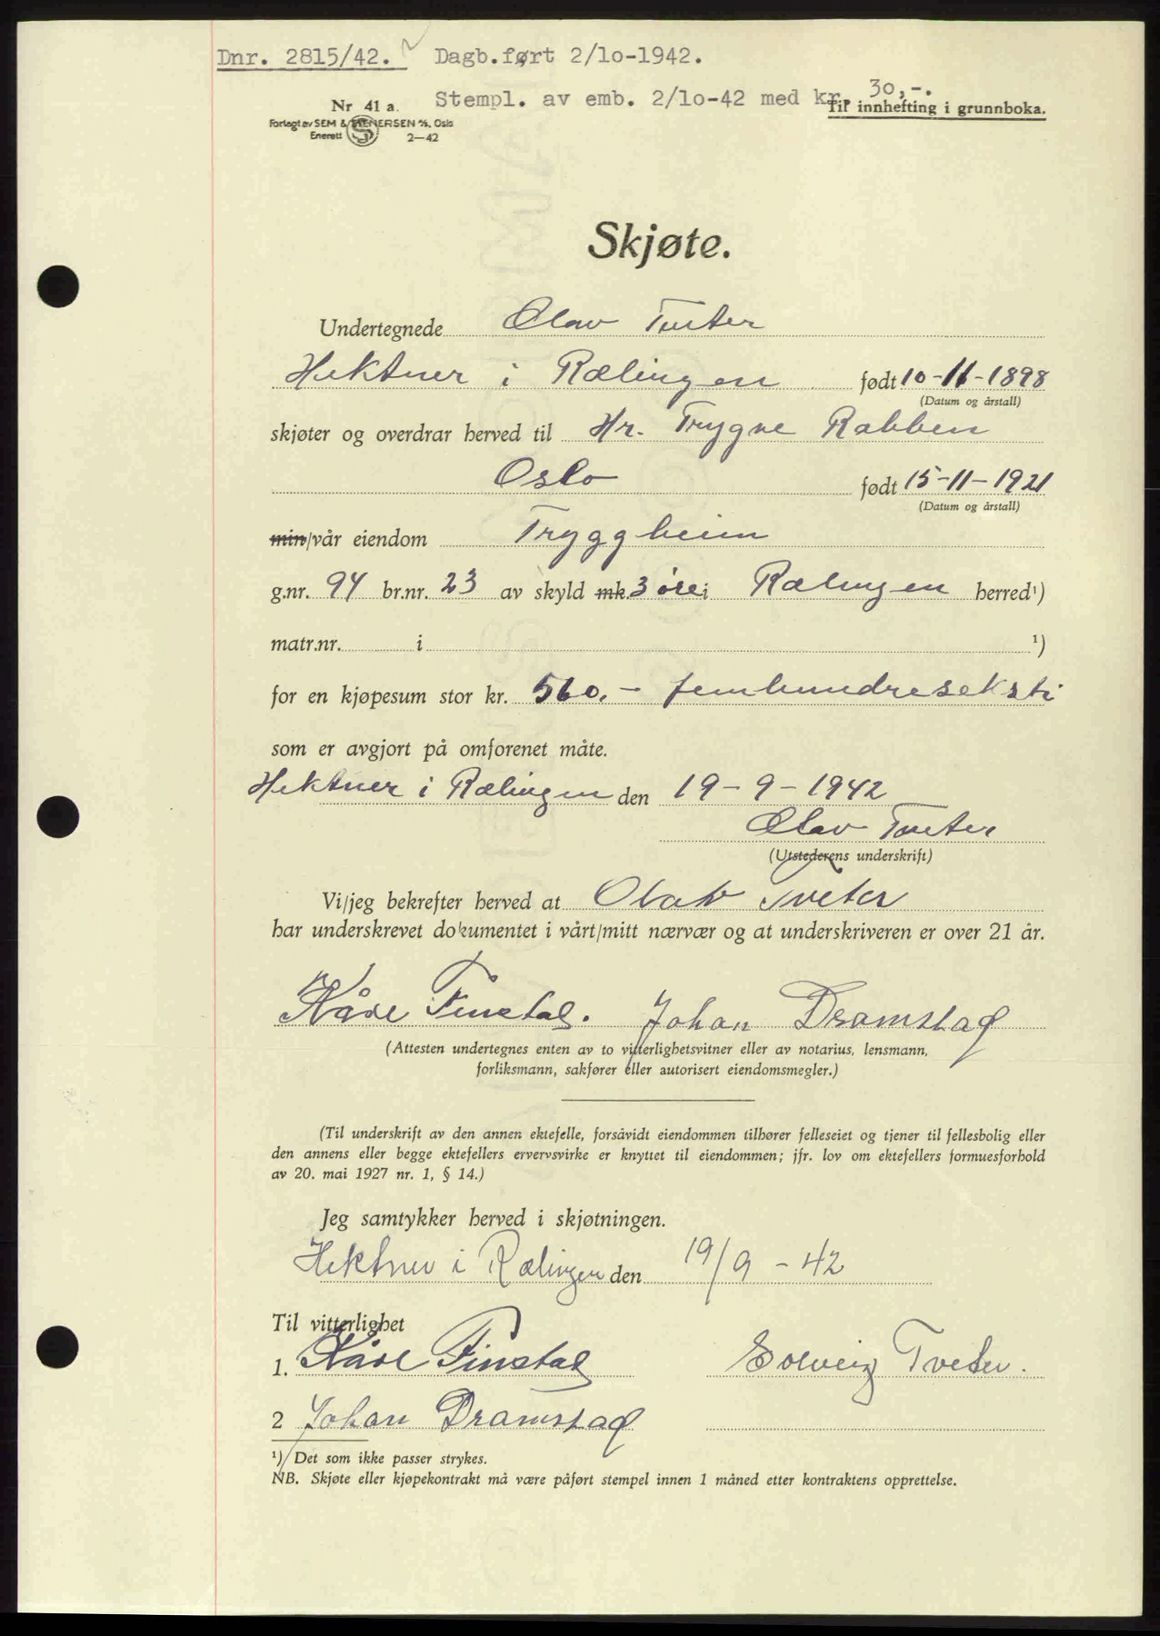 Dnr. 2815/42. Dagb.ført 2/10-1942.
Stempl. av emb. 2/10-42 med kr. 30,-.
Nr 41 a. Til innhefting i grunnboka.
Forlagt av SEM & STENERSEN A/S, Oslo
Enerett S 2—42
Skjøte.
Undertegnede Olav Tveter
Hektner i Rælingen født 10-11-1898
(Datum og årstall)
skjøter og overdrar herved til Hr. Trygve Rabben
Oslo født 15-11-1921
(Datum og årstall)
min/vår eiendom Tryggheim
g.nr. 94 br.nr. 23 av skyld mk. 3 øre i Rælingen herred¹)
matr.nr. i ¹)
for en kjøpesum stor kr. 560.- femhundreseksti
som er avgjort på omforenet måte.
Hektner i Rælingen den 19-9-1942
Olav Tveter
(Utstederens underskrift)
Vi/jeg bekrefter herved at Olav Tveter
har underskrevet dokumentet i vårt/mitt nærvær og at underskriveren er over 21 år.
Kåre Finstad. Johan Dramstad
(Attesten undertegnes enten av to vitterlighetsvitner eller av notarius, lensmann,
forliksmann, sakfører eller autorisert eiendomsmegler.)
(Til underskrift av den annen ektefelle, forsåvidt eiendommen tilhører felleseiet og tjener til fellesbolig eller
den annens eller begge ektefellers ervervsvirke er knyttet til eiendommen; jfr. lov om ektefellers formuesforhold
av 20. mai 1927 nr. 1, § 14.)
Jeg samtykker herved i skjøtningen.
Hektner i Rælingen den 19/9-42
Til vitterlighet
1. Kåre Finstad Solveig Tveter.
2 Johan Dramstad
¹) Det som ikke passer strykes.
NB. Skjøte eller kjøpekontrakt må være påført stempel innen 1 måned etter kontraktens opprettelse.